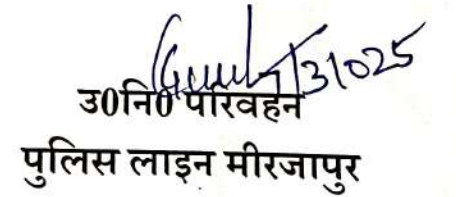 उ0नि0 परिवहन
पुलिस लाइन मीरजापुर